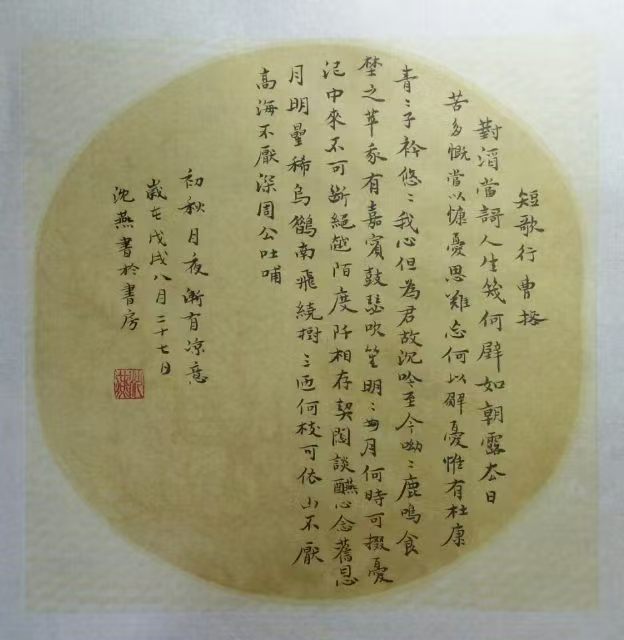 短歌行 曹操
對酒當歌人生幾何譬如朝露去日
苦多慨當以慷憂思難忘何以解憂惟有杜康
青〻子衿悠〻我心但為君故沉吟至今呦〻鹿鳴食
埜之苹我有嘉賓鼓瑟吹笙明〻如月何時可掇憂
從中來不可斷絕越陌度阡相存契闊談醼心念舊恩
月明曐稀烏鵲南飛繞樹三匝何枝可依山不厭
高海不厭深周公吐哺
初秋月夜漸有涼意
歲在戊戌八月二十七日
沈燕書於書房